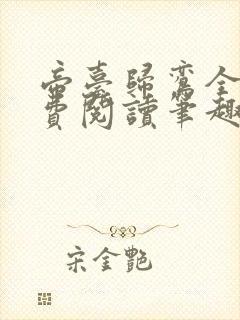 帝臺歸鸞全
費閱讀筆趣
宋金艷